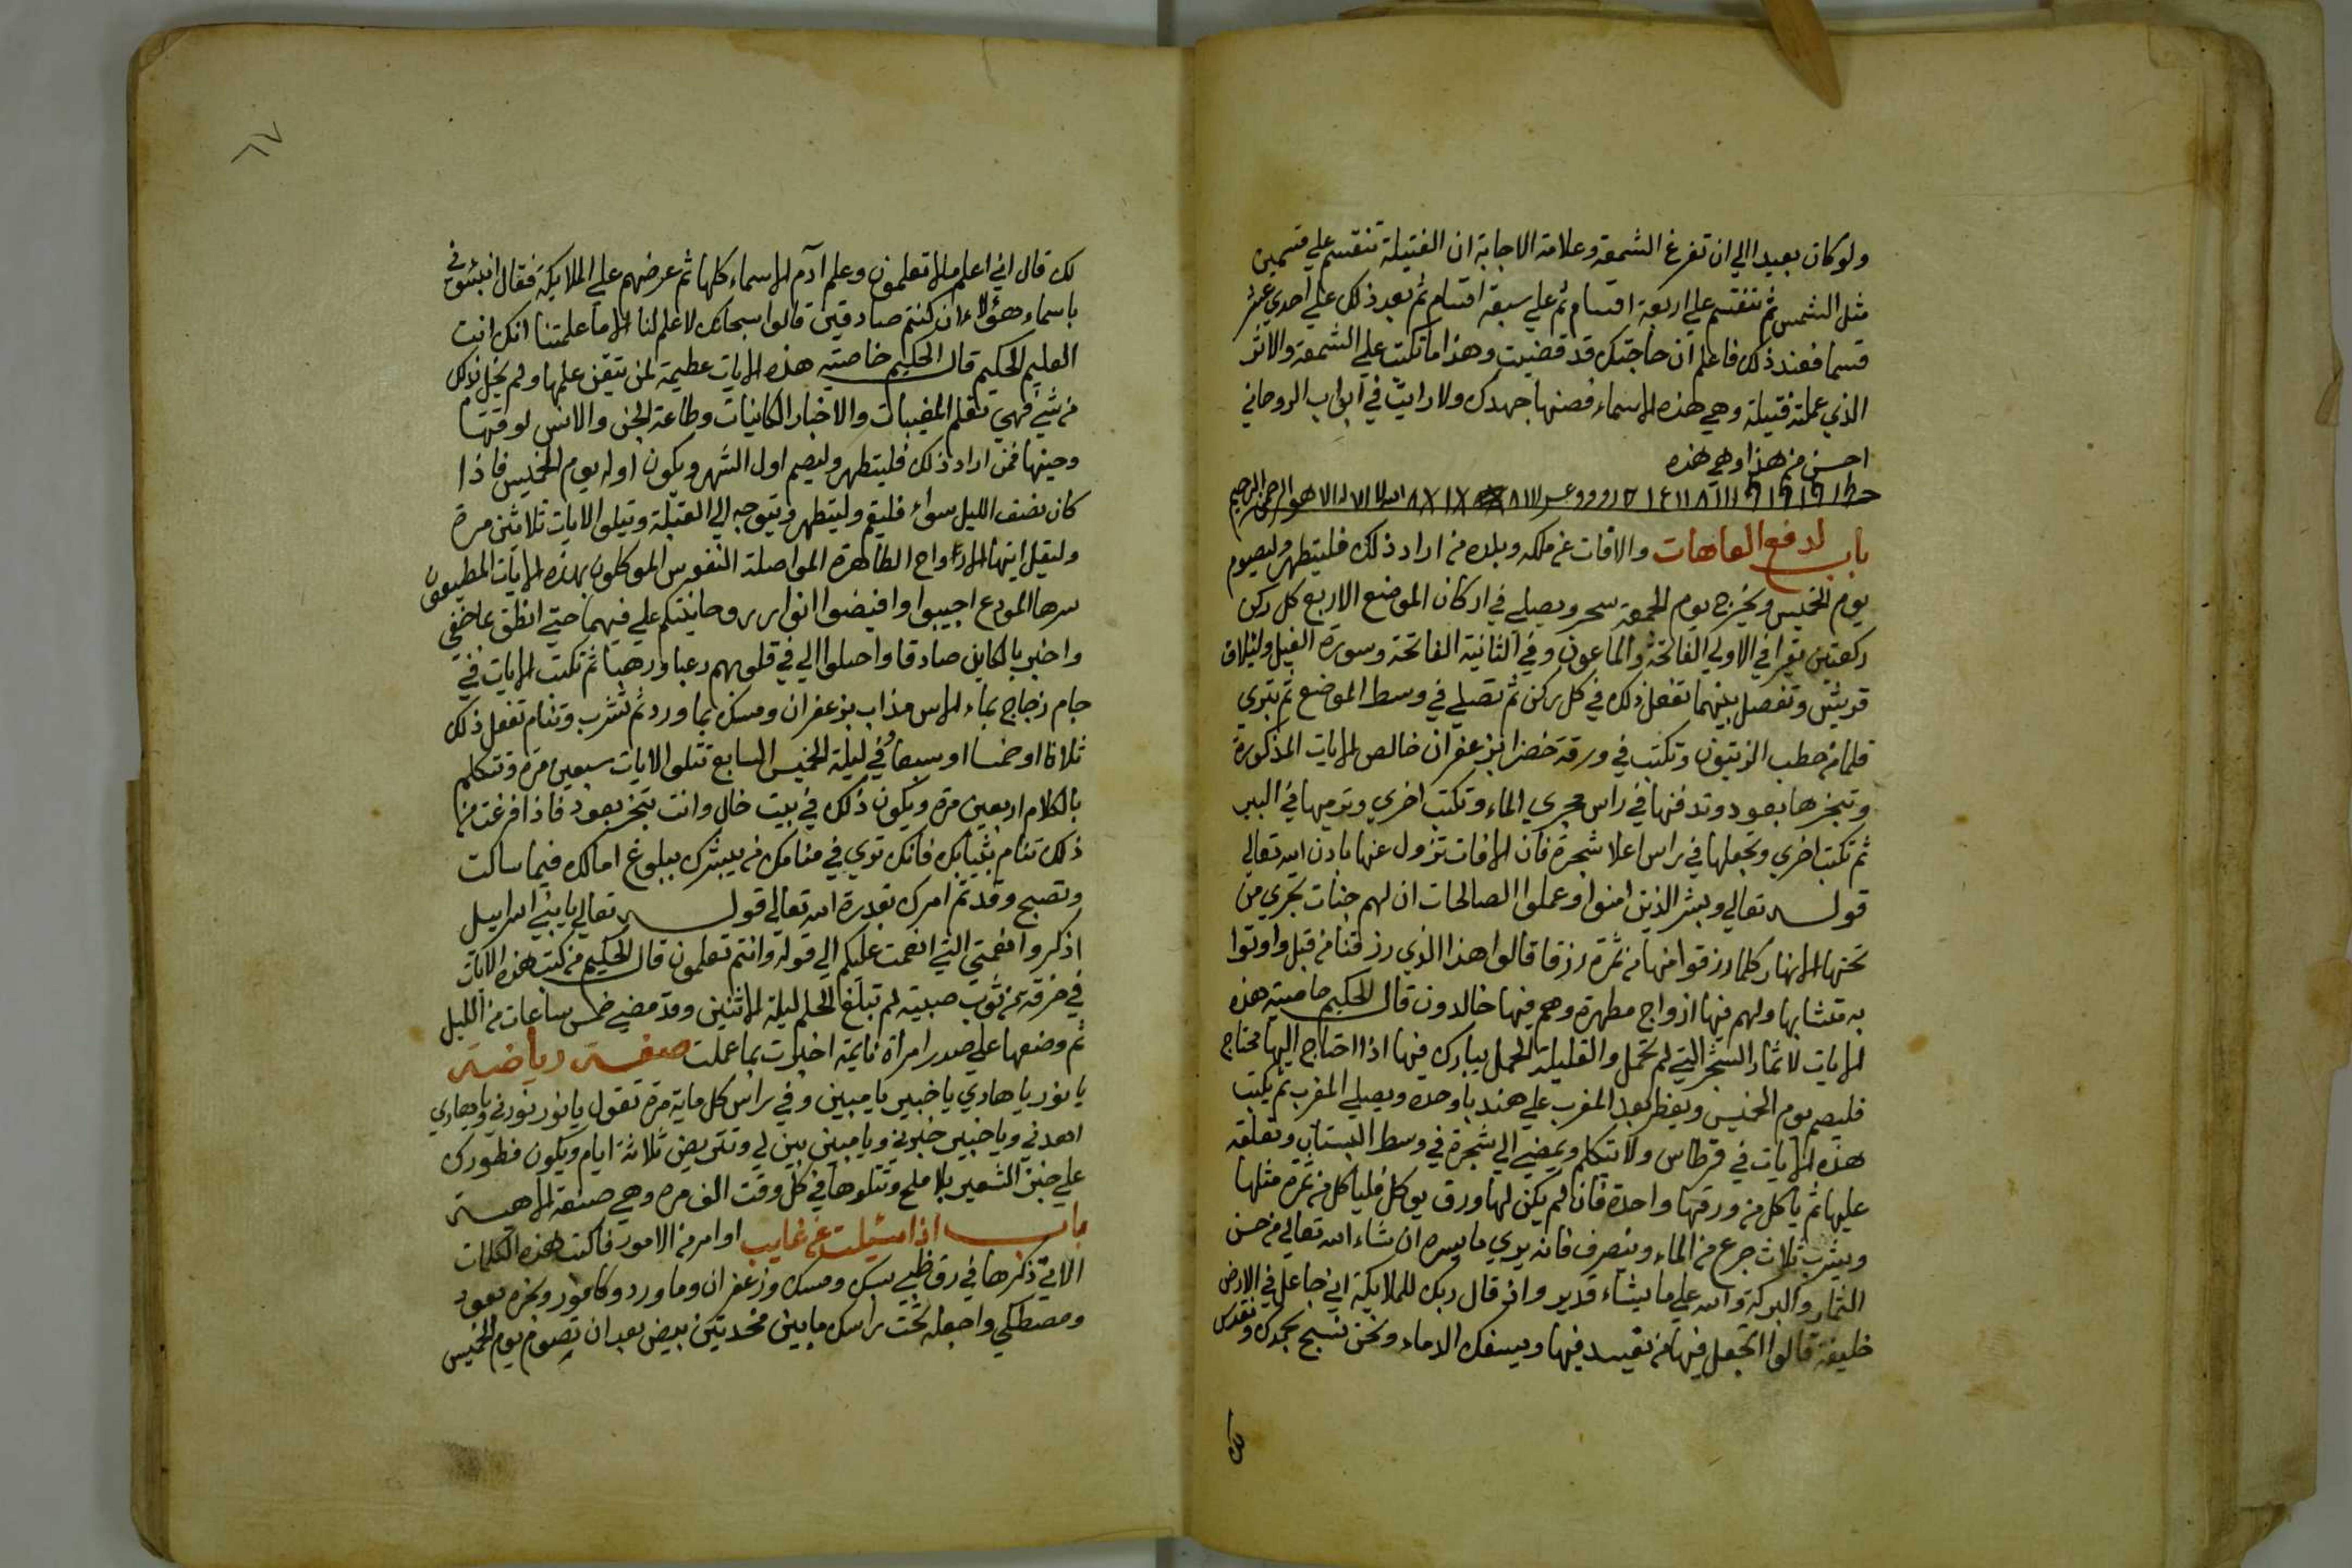 ولو كان بعيدا الي ان تفرغ الشمعة وعلامة الاجابة ان الفتيلة تنقسم علي قسمين
مثل الشمس ثم تنقسم علي اربعة اقسام ثم علي سبعة اقسام ثم بعد ذلك علي احدي عشر
قسما فعند ذلك فاعلم ان حاجتك قد قضيت وهذا ما تكتب علي الشمعة والاثر
الذي عملته فتيلة وهي هذه الاسماء فصنها جهدك ولا رايت في ابواب الروحاني
احسن من هذا وهي هذه
الله لا اله الا هو الرحمن الرحيم
باب لدفع العاهات والافات عن ملكه وبلده من اراد ذلك فليتطهر وليصوم
يوم الخميس ويخرج يوم الجمعة سحر ويصلي في اركان الموضع الاربع كل ركن
ركعتين يقرا في الاولي الفاتحة والماعون وفي الثانية الفاتحة وسورة الفيل ولئلاف
قريش وتفصل بينهما تفعل ذلك في كل ركن ثم تصلي في وسط الموضع ثم تبري
قلما من حطب الزيتون وتكتب في ورقة خضرا بزعفران خالص الايات المذكورة
وتبخرها بعود وتدفنها في راس مجري الماء وتكتب اخري وترميها في البير
ثم تكتب اخري وتجعلها في راس اعلا شجرة فان الافات تزول عنها باذن الله تعالي
قوله تعالي وبشر الذين امنوا وعملوا الصالحات ان لهم جنات تجري من
تحتها الانهار كلما رزقوا منها من ثمرة رزقا قالوا هذا الذي رزقنا من قبل واوتوا
به متشابها ولهم فيها ازواج مطهرة وهم فيها خالدون قال الحكيم خاصية هذه
الايات لاثمار الشجر التي لم تحمل والقليلة الحمل يبارك فيها اذا احتاج اليها محتاج
فليصم يوم الخميس ويفطر بعد المغرب علي هندبا وحده ويصلي المغرب ثم يكتب
هذه الايات في قرطاس ولا يتكلم ويمضي الي شجرة في وسط البستان وتعلقه
عليها ثم ياكل من ورقها واحدة فان لم يكن لها ورق يوكل فلياكل من ثمرة مثلها
ويشرب ثلاث جرع من الماء وينصرف فانه يري ما يسره ان شاء الله تعالي من حسن
الثمار والبركة والله علي ما يشاء قدير واذ قال ربك للملايكة اني جاعل في الارض
خليفة قالوا اتجعل فيها من يفسد فيها ويسفك الدماء ونحن نسبح بحمدك ونقدس
لك
٦٧
لك قال اني اعلم ما لا تعلمون وعلم آدم الاسماء كلها ثم عرضهم علي الملايكة فقال انبئوني
باسماء هؤلاء ان كنتم صادقين قالوا سبحانك لا علم لنا الا ما علمتنا انك انت
العليم الحكيم قال الحكيم خاصية هذه الايات عظيمة لمن تيقن علمها ولم يخل بذلك
من شيء فهي تعلم المغيبات والاخبار الكاينات وطاعة الجن والانس لوقتها
وحينها فمن اراد ذلك فليتطهر وليصم اول الشهر ويكون اوله يوم الخميس فاذا
كان نصف الليل سواء فليقم وليتطهر ويتوجه الي القبلة ويتلوا الايات ثلاثين مرة
وليقل ايتها الارواح الطاهرة المواصلة النفوس الموكلون بهذه الايات المطيعون
سرها المودع اجيبوا وافيضوا انوار روحانيتكم علي فيهما حتي انطق عما خفي
واخبر بالكاين صادقا واصلوا الي في قلوبهم رعبا ورهبا ثم تكتب الايات في
جام زجاج بماء الاس مذاب بزعفران ومسك بما ورد ثم تشرب وتنام تفعل ذلك
ثلاثا او خمسا او سبعا وفي ليلة الخميس السابع تتلوا الايات سبعين مرة وتتكلم
بالكلام اربعين مرة ويكون ذلك في بيت خال وانت تتبخر بعود فاذا فرغت من
ذلك تنام بثيابك فانك تري في منامك من يبشرك ببلوغ امالك فيما سالت
وتصبح وقد تم امرك بقدرة الله تعالي قوله تعالي يا بني اسراييل
اذكروا نعمتي التي انعمت عليكم الي قوله وانتم تعلمون قال الحكيم من كتب هذه الايات
في خرقة من ثوب صبية لم تبلغ الحلم ليلة الاثنين وقد مضي خمس ساعات من الليل
ثم وضعها علي صدر امراة نايمة اخبرت بما عملت صفة رياضة
يا نور يا هادي يا خبير يا مبين وفي راس كل ماية مرة تقول يا نور نورني ويا هادي
اهدني ويا خبير خبرني ويا مبين بين لي وتتريض ثلاثة ايام ويكون فطورك
علي خبز الشعير بلا ملح وتتلوها في كل وقت الف مرة وهي صفة
باب اذا سئلت عن غايب او امر من الامور فاكتب هذه الكلمات
الاتي ذكرها في رق ظبي بمسك وزعفران وما ورد وكافور وبخره بعود
ومصطكي واجعله تحت راسك ما بين مخدتين بيض بعد ان تصوم يوم الخميس